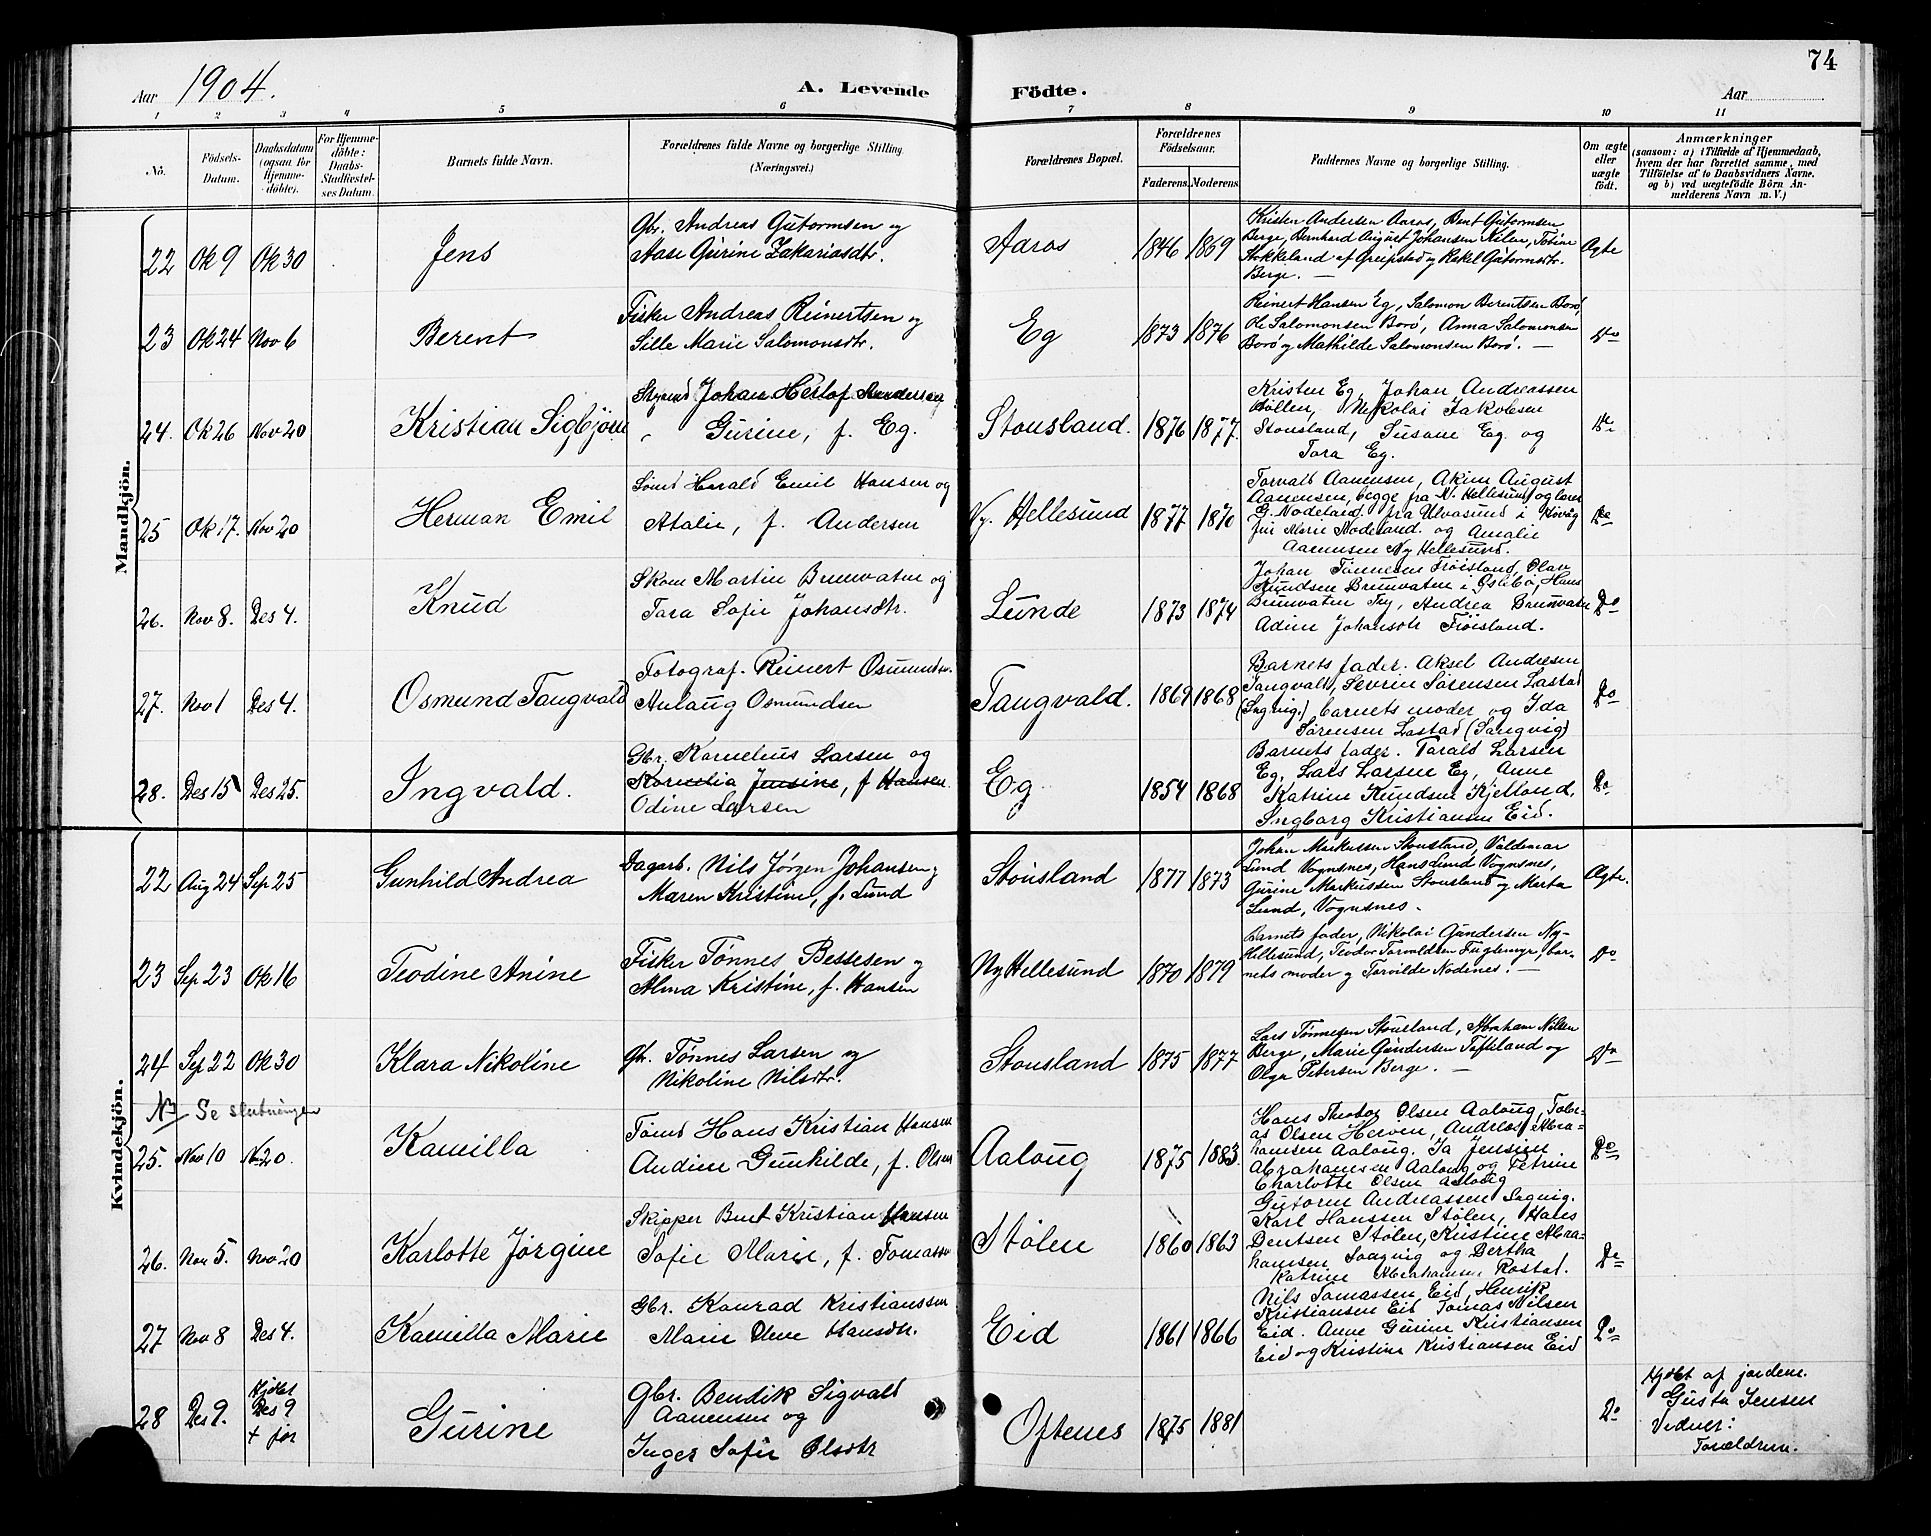 74
Aar 1904.
A. Levende Födte.
Aar
1 2 3 4 5 6 7 8 9 10 11
No.
Födsels-
Datum.
Daabsdatum
(ogsaa for
Hjemme-
döbte).
For Hjemme-
döbte:
Daabs-
Stadfæstel-
ses Datum.
Barnets fulde Navn.
Forældrenes fulde Navne og borgerlige Stilling.
(Næringsvei.)
Forældrenes Bopæl.
Forældrenes
Födselsaar.
Faderens. Moderens.
Faddernes Navne og borgerlige Stilling.
Om ægte
eller
uægte
födt.
Anmærkninger
(saasom: a) i Tilfælde af Hjemmedaab,
hvem der har forrettet samme, med
Tilföielse af to Daabsvidners Navne,
og b) ved uægtefödte Börn An-
melderens Navn m. V.)
Mandkjön.
22 Ok 9 Ok 30 Jens
Gbr. Andreas Gutormsen og
Aase Gurine Zakariasdtr.
Aaros 1846 1869
Kristen Andersen Aaros, Bent Gutormsen
Berge, Bernhard August Johansen Nilen, Tobine
Stokkeland af Greipstad og Rakel Gutormsdtr.
Berge. —
Ægte
23 Ok 24 Nov 6 Berent
Fisker Andreas Reinertsen og
Sille Marie Salomonsdtr.
Eg 1873 1876
Reinert Hansen Eg, Salomon Berentsen Borö,
Ole Salomonsen Borö, Anna Salomonsen
Borö og Mathilde Salomonsen Borö. —
Do
24. Ok 26 Nov 20 Kristian Sigbjörn
Styrmd Johan Herlof Andersen
" Gurine, f. Eg.
Stousland. 1876 1877.
Kristen Eg, Johan Andreassen
Höllen, Nikolai Jakobsen
Stousland, Susane Eg. og
Tora Eg.
Do
25 Ok 17. Nov 20 Herman Emil
Sömd Harald Emil Hansen og
Atalie, f. Andersen
Ny. Hellesund 1877 1870
Torvald Aanensen, Akim August
Aanensen, begge fra N. Hellesund og
G. Nodeland fra Ulvøsund i Høvåg
Marie Nodeland. og Amalie
Aanensen Ny Hellesund.
Do
26. Nov 8. Des 4. Knud
Skom Martin Brunvatne og
Tara Sofie Johansdtr.
Lunde 1873 1874
Johan Tönnesen Fröisland, Olav
Knudsen Brunvatne i Öslebö, Hans
Brunvatne Try, Andrea Brunvatne
Adine Johansdtr Fröisland.
Do
27. Nov 1 Des 4. Osmund Tangvald
Fotograf. Reinert Osmundsn.
Aulaug Osmundsen
Tangvald. 1869 1868
Barnets fader. Aksel Andresen
Tangvald, Sevrin Sørensen Lastad
(Sngvig.) barnets moder og Ida
Sørensen Lastad (Sangvig)
Do
28. Des 15 Des 25. Ingvald.
Gbr. Kornelius Larsen og
Kornelia Jensine, f Hansen
Odine Larsen
Eg 1854 1868
Barnets fader. Tarald Larsen
Eg, Lars Larsen Eg, Anne
Katrine Knudsen Kjelland,
Ingborg Kristiansen Eid.
Do
Kvindekjön.
22 Aug 24 Sep 25 Gunhild Andrea
Dagarb. Nils Jørgen Johansen og
Maren Kristine, f. Lund
Stousland 1877 1873
Johan Markussen Stousland, Valdemar
Lund Vognsnes, Hans Lund Vognsnes,
Gurine Markussen Stousland og Marta
Lund, Vognsnes.
Ægte.
23 Sep 23 Ok 16 Teodine Anine
Fisker Tønnes Bessesen og
Alma Kristine, f. Hansen
Ny Hellesund 1870 1879
Barnets fader, Nikolai Gundersen Ny-
Hellesund, Teodor Torvaldsen Fuglemyr, bar-
nets moder og Torvilde Nodenes. —
Do
24 Sep 22 Ok 30 Klara Nikoline
Gbr. Tønnes Larsen og
Nikoline Nilsdtr.
Stousland 1875 1877
Lars Tønnesen Stousland, Abraham Nilsen
Berge, Marie Gundersen Tofteland og
Olga Petersen Berge. —
Do
N3 Se slutningen
25. Nov 10 Nov 20. Kamilla
Tömd Hans Kristian Hansen
Andine Gunhilde, f. Olsen
Aaloug 1875 1883.
Hans Theodor Olsen Aaloug, Tobi-
as Olsen Herven, Andreas Abra-
hamsen Aaloug. Ja Jensine
Abrahamsen Aaloug og Petrine
Charlotte Olsen Aaloug
Do
26. Nov 5. Nov 20 Karlotte Jørgine
Skipper Bent Kristian Hansen
Sofie Marie, f. Tomassn
Stølen 1860 1863
Gutorm Andreassen Sagvig.
Karl Hanssen Stølen, Hans
Bentsen Stølen, Kristine Abra-
hamsen Saagvig og Bertha
Katrine Abrahamsen Rostad.
Do
27 Nov 8 Des 4. Kamilla Marie
Gbr. Konrad Kristianssen
Marie Olene Hansdtr.
Eid 1861 1866
Nils Tomassen Eid, Henrik
Kristiansen Eid Tomas Nilsen
Eid. Anne Gurine Kristiansen
Eid og Kristine Kristiansen Eid
Do
28 Des 9. Hjdbt
Des 9
+ før
Gurine
Gbr. Bendik Sigvald
Aanensen og
Inger Sofie Olsdtr
Oftenes 1875 1881
Do
Hjdbt af jordem.
Gusta Jensen
Vidner:
Forældrene.